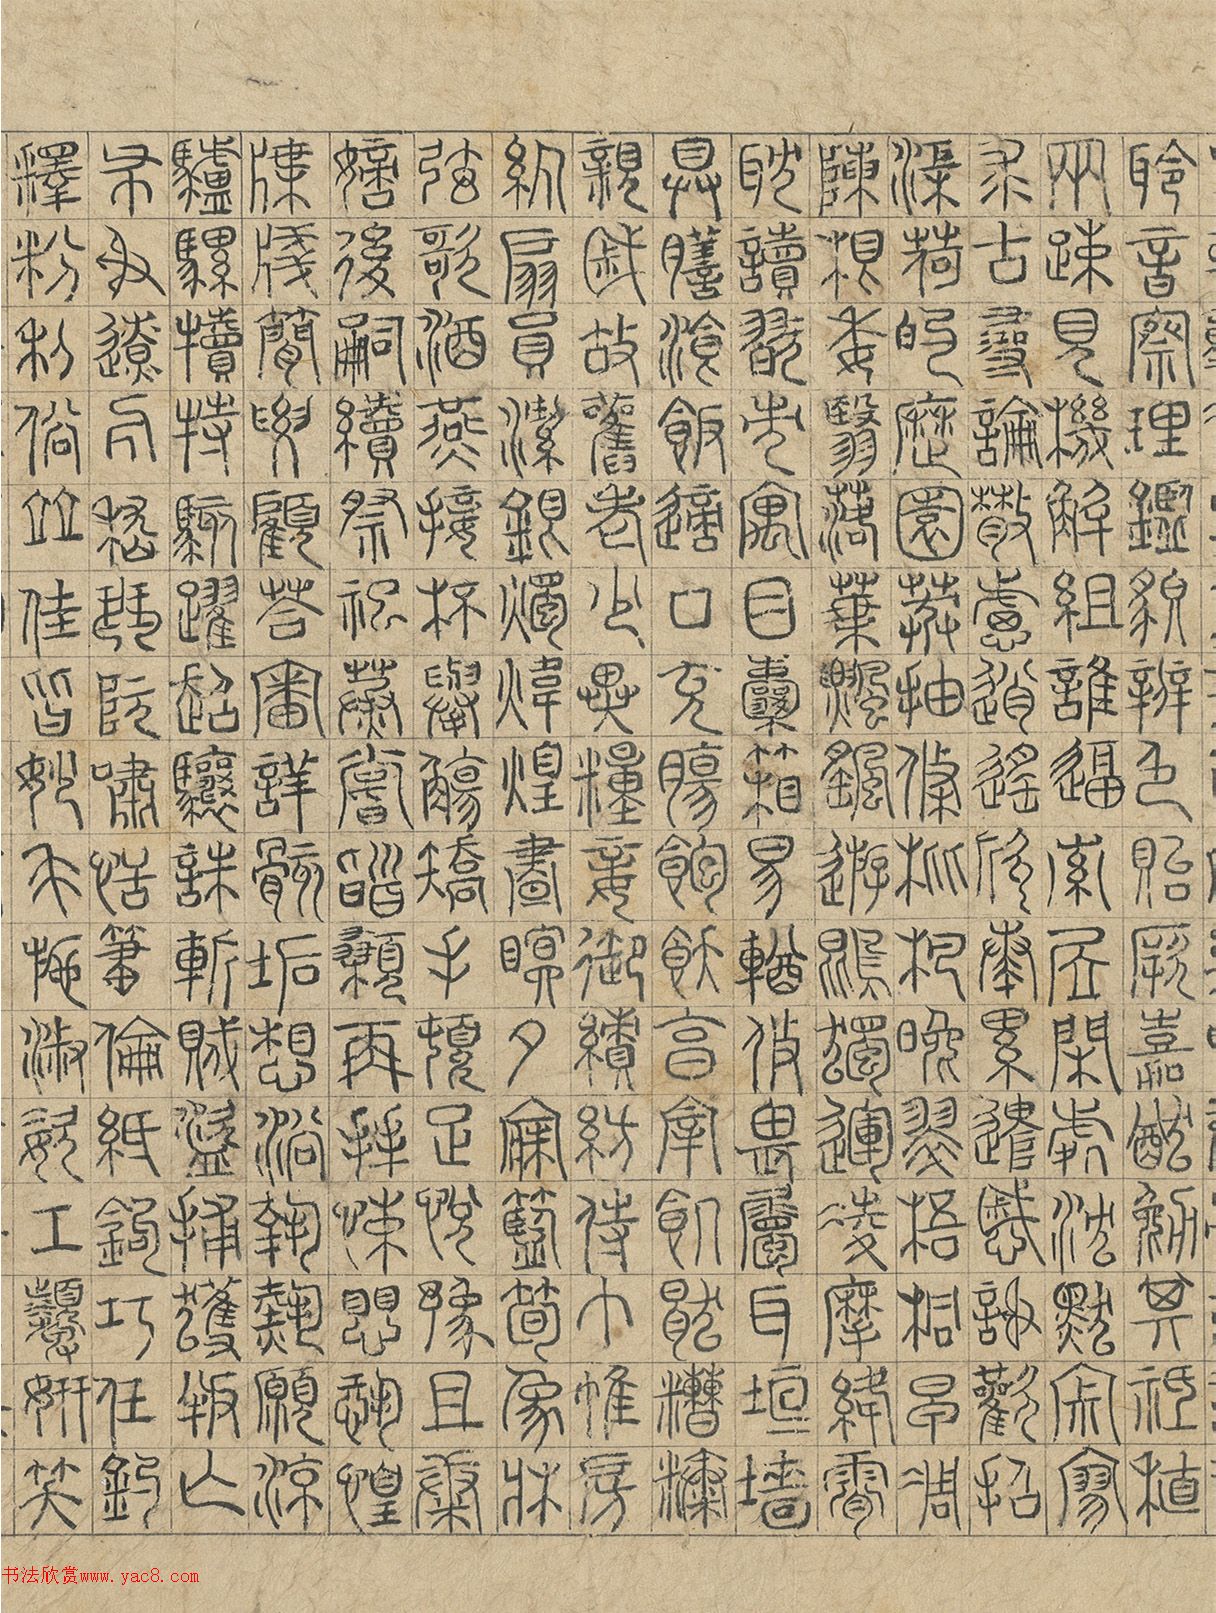 聆音察理鑑貌辨色貽厥嘉猷勉其祗植
兩疎見機解組誰逼索居閑處沈默寂寥
求古尋論散慮逍遙欣奏累遣慼謝歡招
渠荷的歷園莽抽條枇杷晚翠梧桐早凋
陳根委翳落葉飄颻遊鵾獨運凌摩絳霄
耽讀翫市寓目囊箱易輶攸畏屬耳垣墻
具膳飡飯適口充腸飽飫享宰飢厭糟糠
親戚故舊老少異糧妾御績紡侍巾帷房
紈扇員潔銀燭煒煌晝瞑夕寐籃筍象牀
弦歌酒燕接杯舉觴矯手頓足悅豫且康
嫡後嗣續祭祀蒸嘗稽顙再拜悚懼恐惶
牒牋簡要顧答審詳骸垢想浴執熱願涼
驢騾犢特駭躍超驤誅斬賊盜捕獲叛亡
布射遼丸嵇琴阮嘯恬筆倫紙鈞巧任釣
釋紛利俗竝佳皆妙毛施淑姿工顰妍笑
书法欣赏www.yac8.com